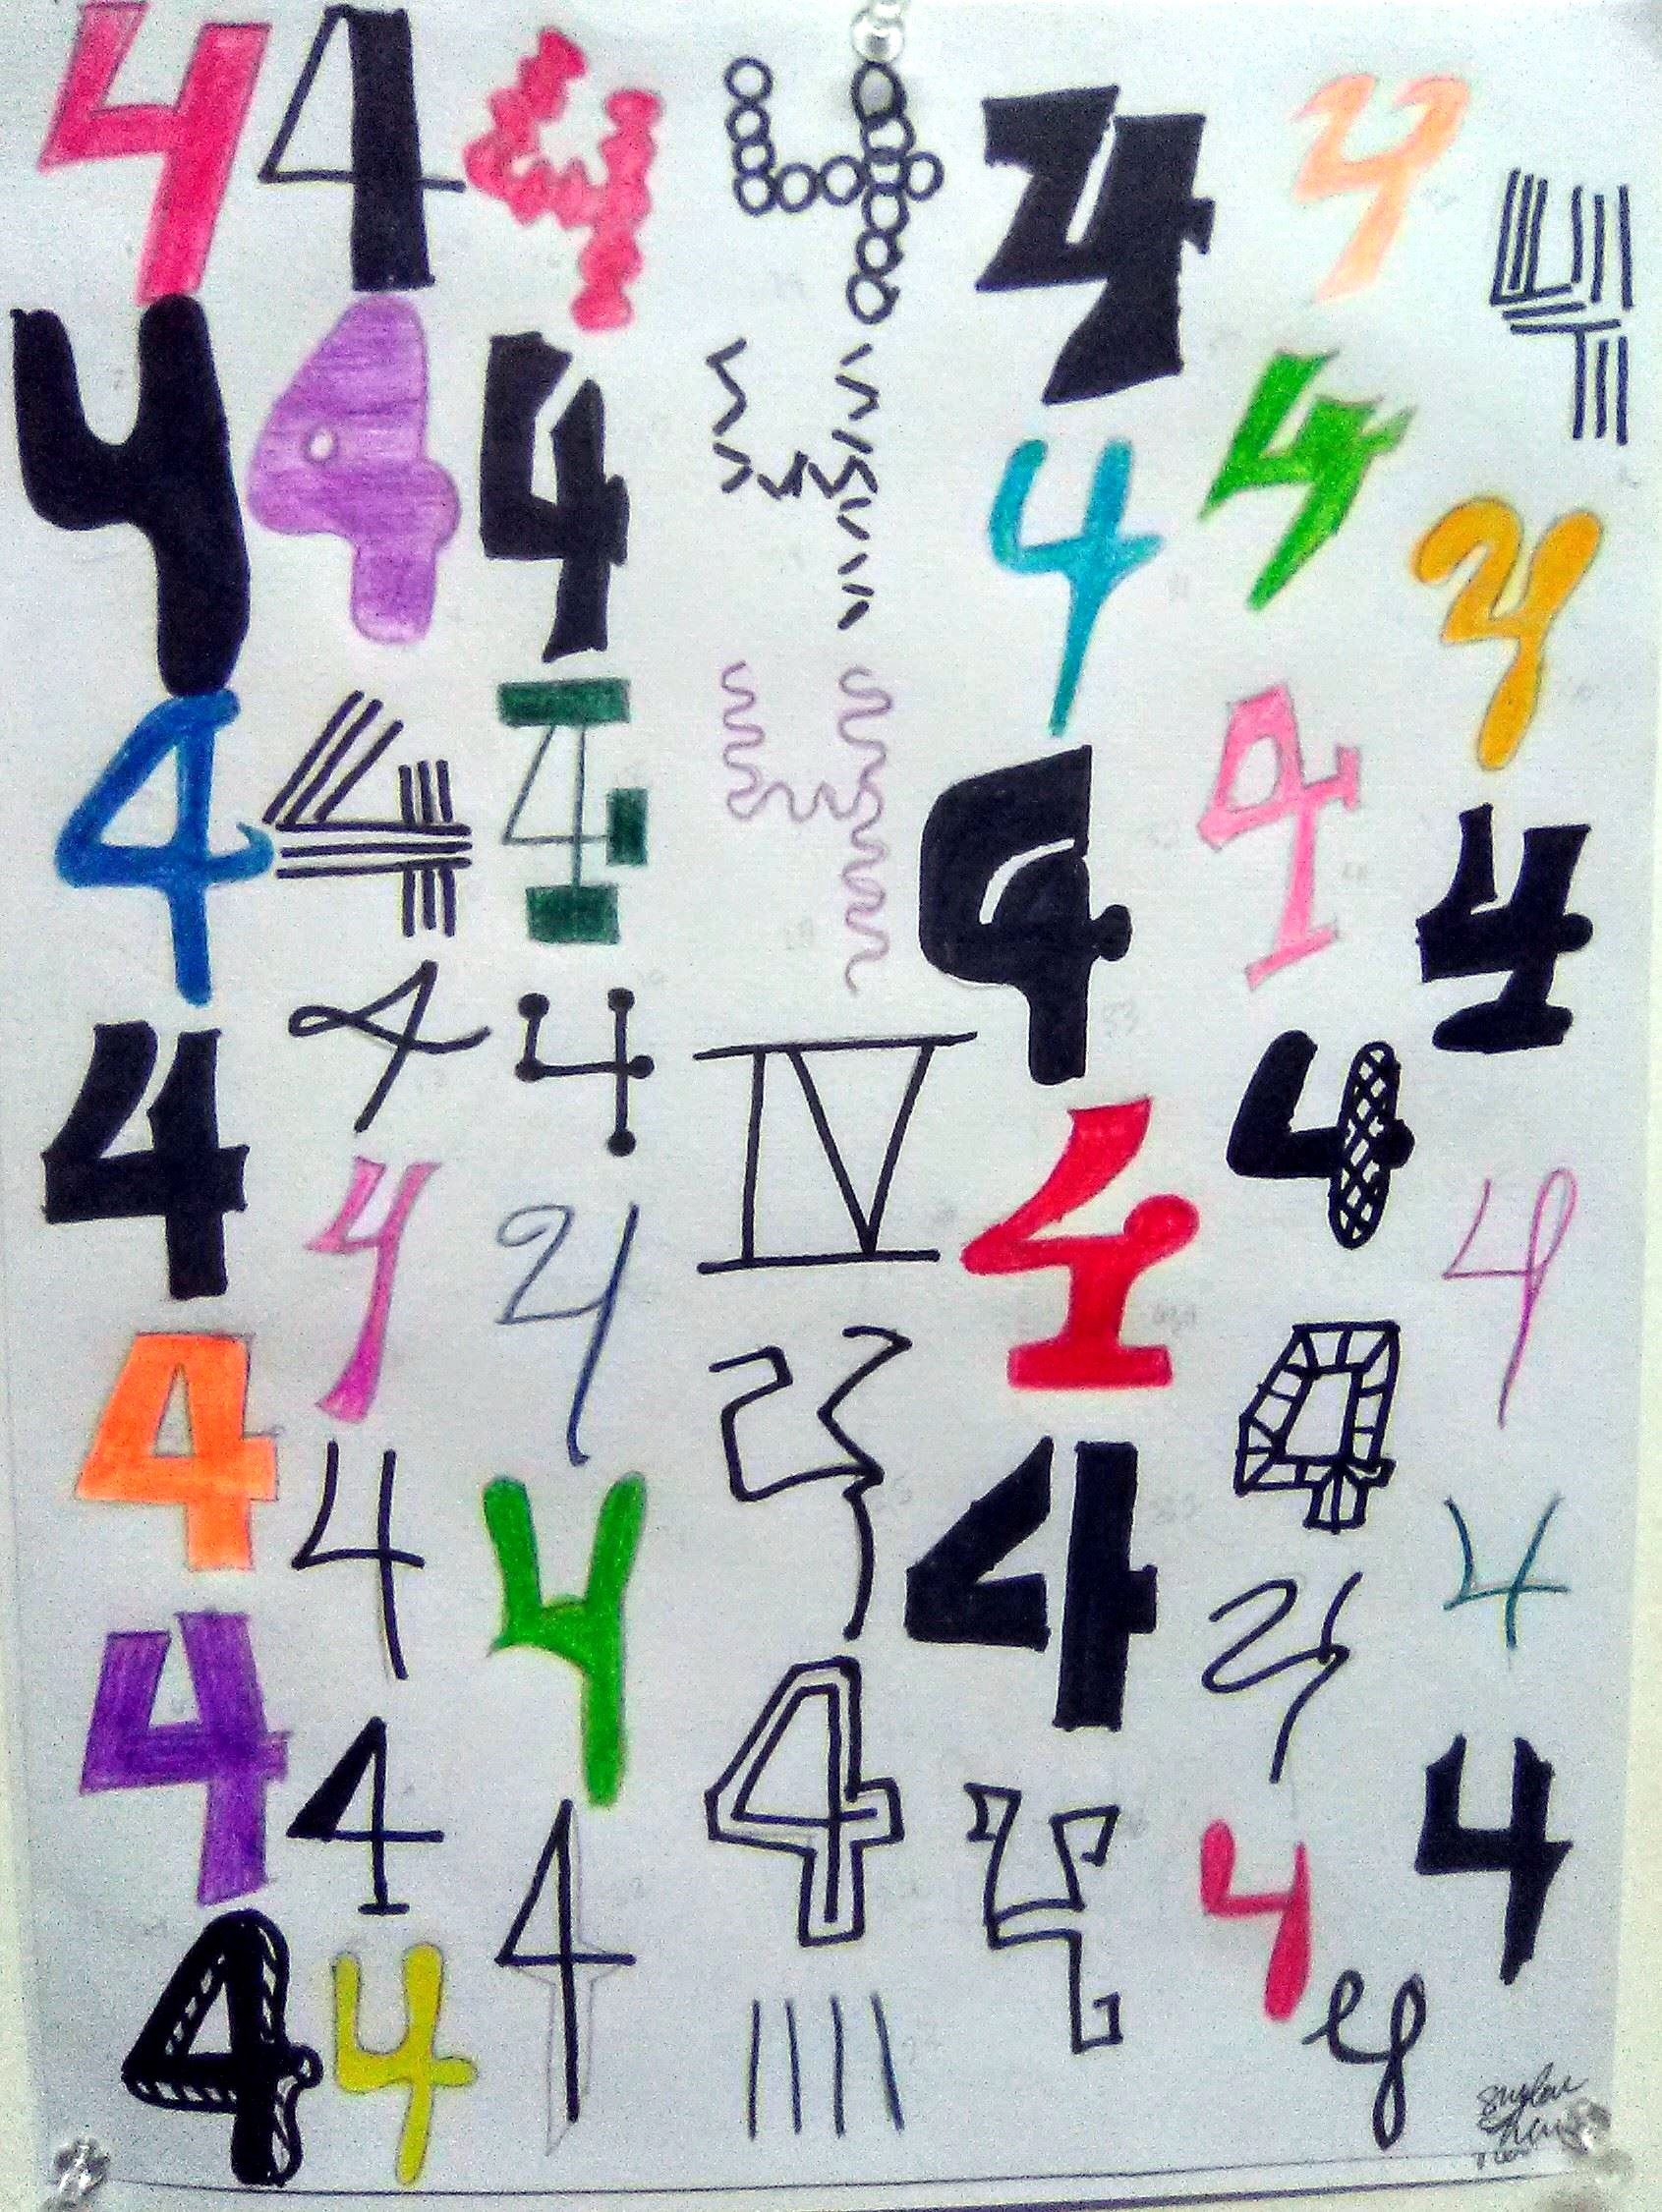 4 4 4 4 4 4 4
4 4 4 4 4 4 4
4 4 4 4 4 4 4
4 4 4 IV 4 4 4
4 4 4 4 4 4 4
4 4 4 4 4 4 4
4 4 4 4 IIII 4 4